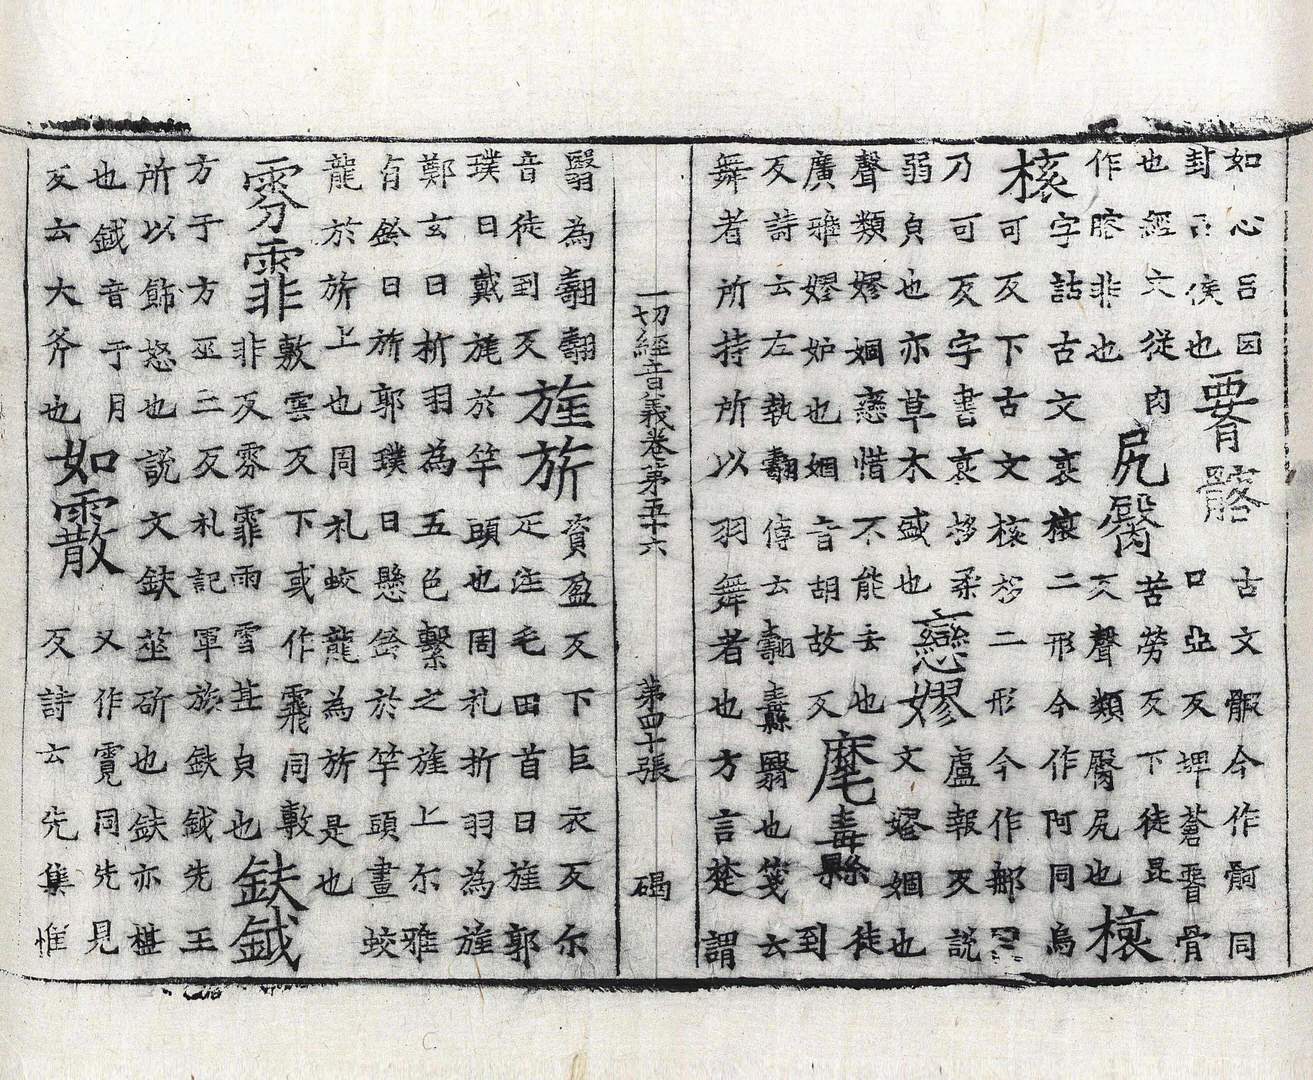 如心呂因𦝫髂古文䯊今作䯊同
封口侯也口亞反埤蒼𦝫骨
也經文從肉尻臀苦勞反下徒昆
作膟非也反聲類臀尻也榱
字詁古文褭榱二形今作阿同烏
榱可反下古文榱栘二形今作挪同
乃可反字書褭栘柔盧報反說
弱皃也亦草木盛也戀嫪文嫪婟也
聲類嫪婟戀惜不能去也徒
廣雅嫪妒也婟音胡故反麾纛到
反詩云左執翿傳云翿纛翳也箋云
舞者所持所以羽舞者也方言楚謂
一切經音義卷第五十六 第四十張 碣
翳為翿翿資盈反下巨衣反尒
音徒到反旌旂疋注旄田首曰旌郭
璞曰戴旄於竿頭也周礼折羽為旌
鄭玄曰析羽為五色繫之旌上尒雅
有鈴曰旂郭璞曰懸鈴於竿頭畫蛟
龍於旂上也周礼蛟龍為旂是也
敷雲反下或作霏同敷
雰霏非反雰霏雨雪甚皃也鈇鉞
方于方巫二反礼記軍旅鈇鉞先王
所以飾怒也說文鈇莝斫也鈇亦椹
也鉞音于月又作霓同先見
反云大斧也如霰反詩云先集惟